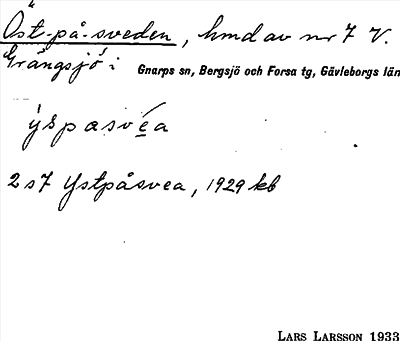 Öst-på-sveden, hmd av nr 7 V.
Grängsjö i Gnarps sn, Bergsjö och Forsa tg, Gävleborgs län
ýspasvéa
2 s7 Ystpåsvea, 1929 kb
LARS LARSSON 1933